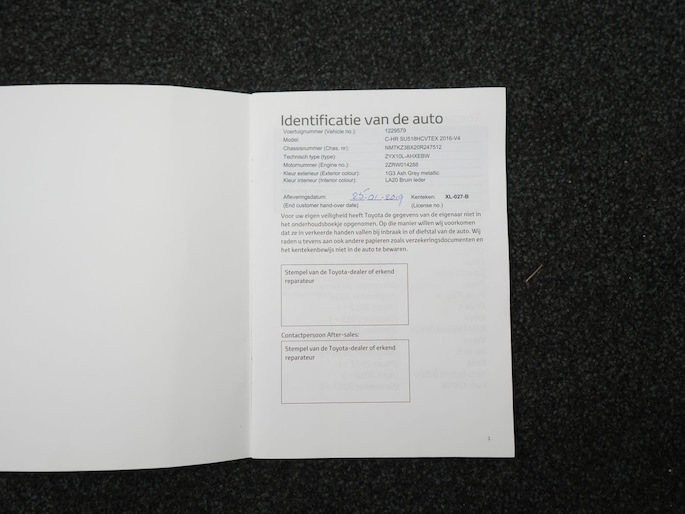 Identificatie van de auto
Voertuignummer (Vehicle no.): 1229579
Model: C-HR SU518HCVTEX 2016-V4
Chassisnummer (Chas. nr): NMTKZ3BX20R247512
Technisch type (type): ZYX10L-AHXEBW
Motornummer (Engine no.): 2ZRW014256
Kleur exterieur (Exterior colour): 1G3 Ash Grey metallic
Kleur interieur (Interior colour): LA20 Bruin leder
Afleveringsdatum: 25-01-2019 Kenteken: XL-027-B
(End customer hand-over date) (License no.)
Voor uw eigen veiligheid heeft Toyota de gegevens van de eigenaar niet in
het onderhoudsboekje opgenomen. Op die manier willen wij voorkomen
dat ze in verkeerde handen vallen bij inbraak in of diefstal van de auto. Wij
raden u tevens aan ook andere papieren zoals verzekeringsdocumenten en
het kentekenbewijs niet in de auto te bewaren.
Stempel van de Toyota-dealer of erkend
reparateur
Contactpersoon After-sales:
Stempel van de Toyota-dealer of erkend
reparateur
1